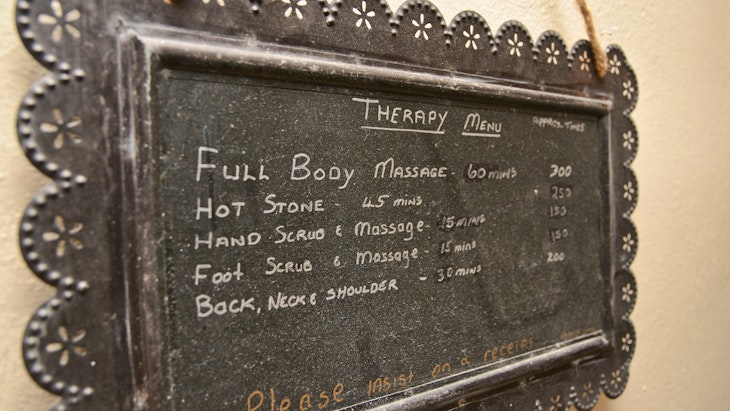 THERAPY MENU APPROX. TIMES
FULL BODY MASSAGE - 60 MINS 300
HOT STONE - 45 MINS 250
HAND SCRUB & MASSAGE - 15 MINS 150
FOOT SCRUB & MASSAGE - 15 MINS 150
BACK, NECK & SHOULDER - 30 MINS 200
Please insist on a receipt